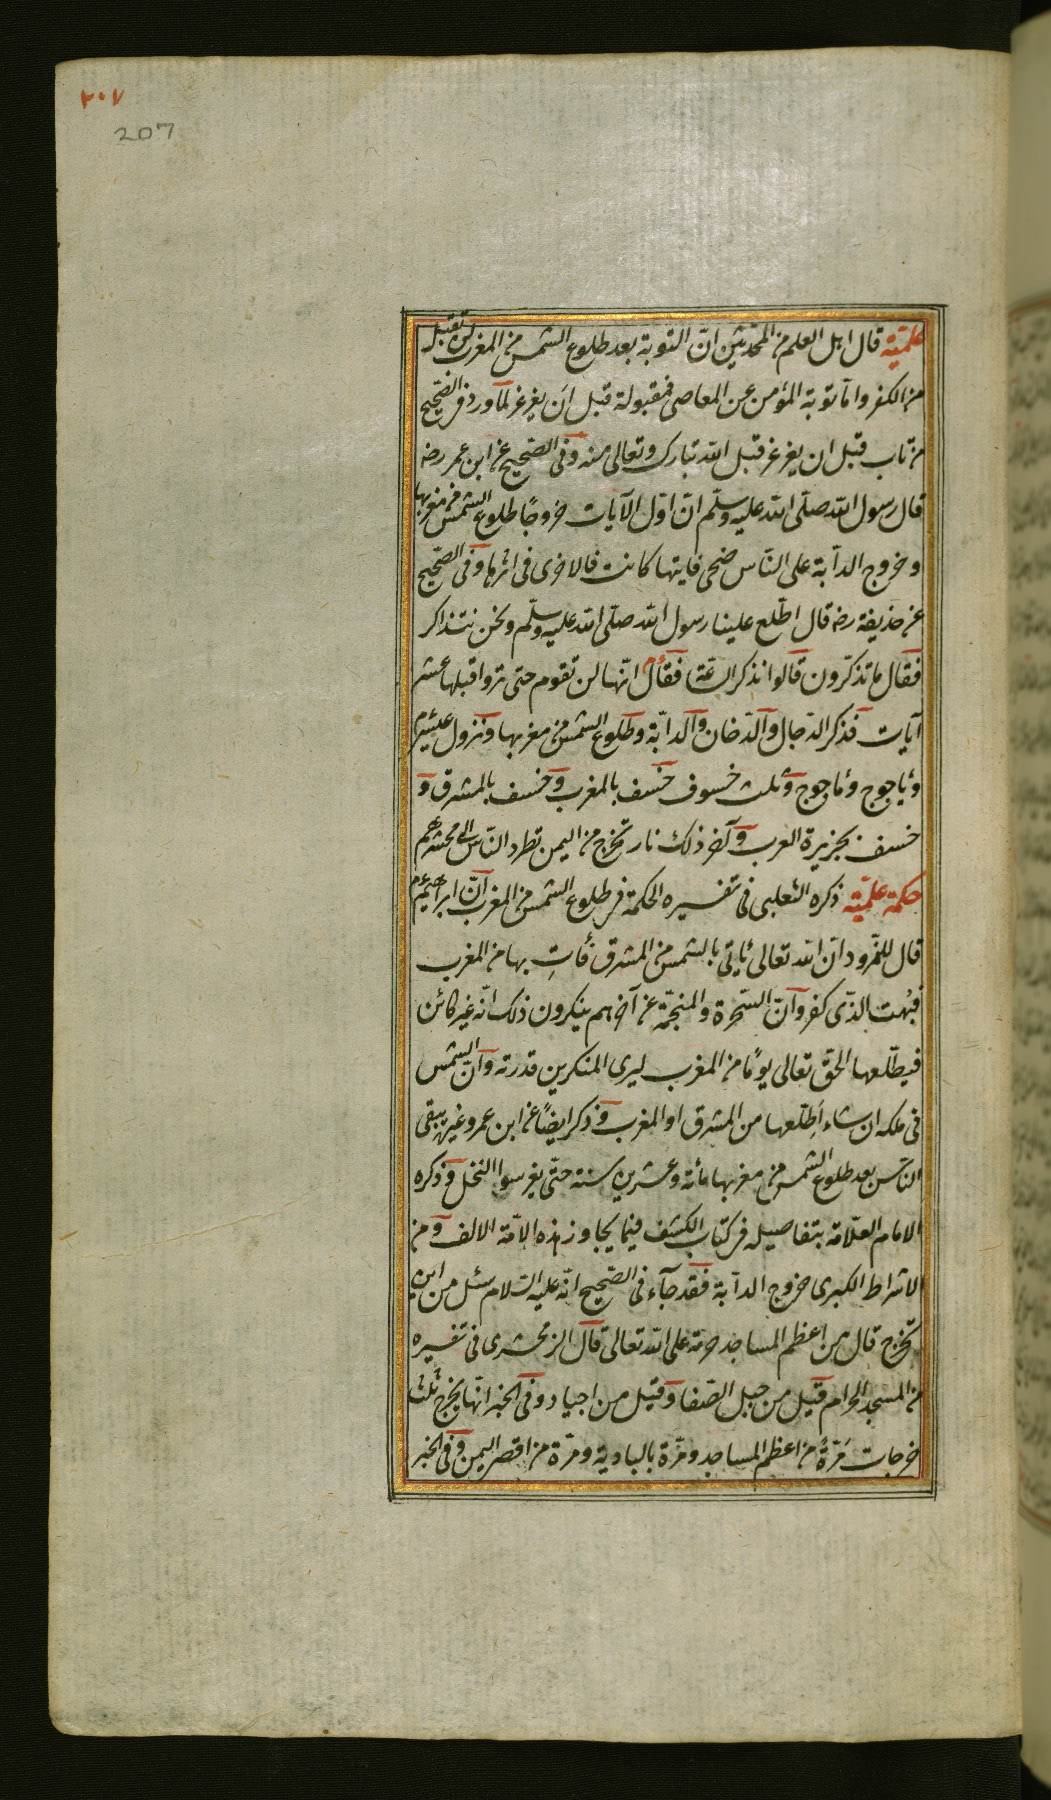 ٢٠٧
207
علميّة قال اهل العلم من المحدّثين انّ التوبة بعد طلوع الشمس من المغرب لن تقبل
من الكفر وامّا توبة المؤمن عن المعاصى فمقبولة قبل اَن يغرغر لما ورد فى الصّحيح
من تاب قبل ان يغرغر قبل الله تبارك وتعالى منه وفى الصّحيح عن ابن عمر رضه
قال رسول الله صلّى الله عليه وسلّم انّ اوّل الآيات خروجًا طلوع الشمس من مغربها
وخروج الدآبة على النّاس ضحى فايتها كانت فالاخرى فى اثرها وفى الصّحيح
عن حذيفة رضه قال اطّلع علينا رسول الله صلّى الله عليه وسلّم ونحن نتذاكر
فقال ما تذكّرون قالوا نذكر السّاعة فقال انّها لن تقوم حتى تروا قبلها عشر
آيات فذكر الدّجال والدّخان والدابّة وطلوع الشمس من مغربها ونزول عيسى
وياجوج وماجوج وثلث خسوف خسف بالمغرب وخسف بالمشرق و
خسف بجزيرة العرب وآخر ذلك نار تخرج من اليمن تطرد النّاس الى محشرهم
حكمة علميّة ذكره الثعلبى فى تفسيره الحكمة فى طلوع الشمس من المغرب انّ ابراهيم
قال للنّمرود انّ الله تعالى ياتى بالشمس من المشرق فأتِ بها من المغرب
فبُهت الذّى كفر وانّ السّحرة والمنجمّة عن آخرهم ينكرون ذلك انّه غير كائن
فيطّلعها الحقّ تعالى يومًا من المغرب ليرى المنكرين قدرته وانّ الشمس
فى ملكه ان شاء اَطلَعها من المشرق او المغرب وذكر ايضًا عن ابن عمر وغيره يبقى
الناس بعد طلوع الشمس من مغربها مأئة وعشرين سنة حتّى يغرسوا النخل وذكره
الامام العلّامة بتفاصيله فى كتاب الكشف فيما يجاوز هذه الامّة الالف ومن
الاشراط الكبرى خروج الدآبة فقد جآء فى الصّحيح انّه عليه السّلام سئل من اين
تخرج قال من اعظم المساجد حرمة على الله تعالى قال الزمخشرى فى تفسيره
من المسجد الحرام قيل من جبل الصّفا وقيل من اجياد وفى الخبر انّها تخرج ثلث
خرجات مَرّةً من اعظم المساجد ومرّة بالبادية ومرّة من اقصى اليمن وفى الخبر